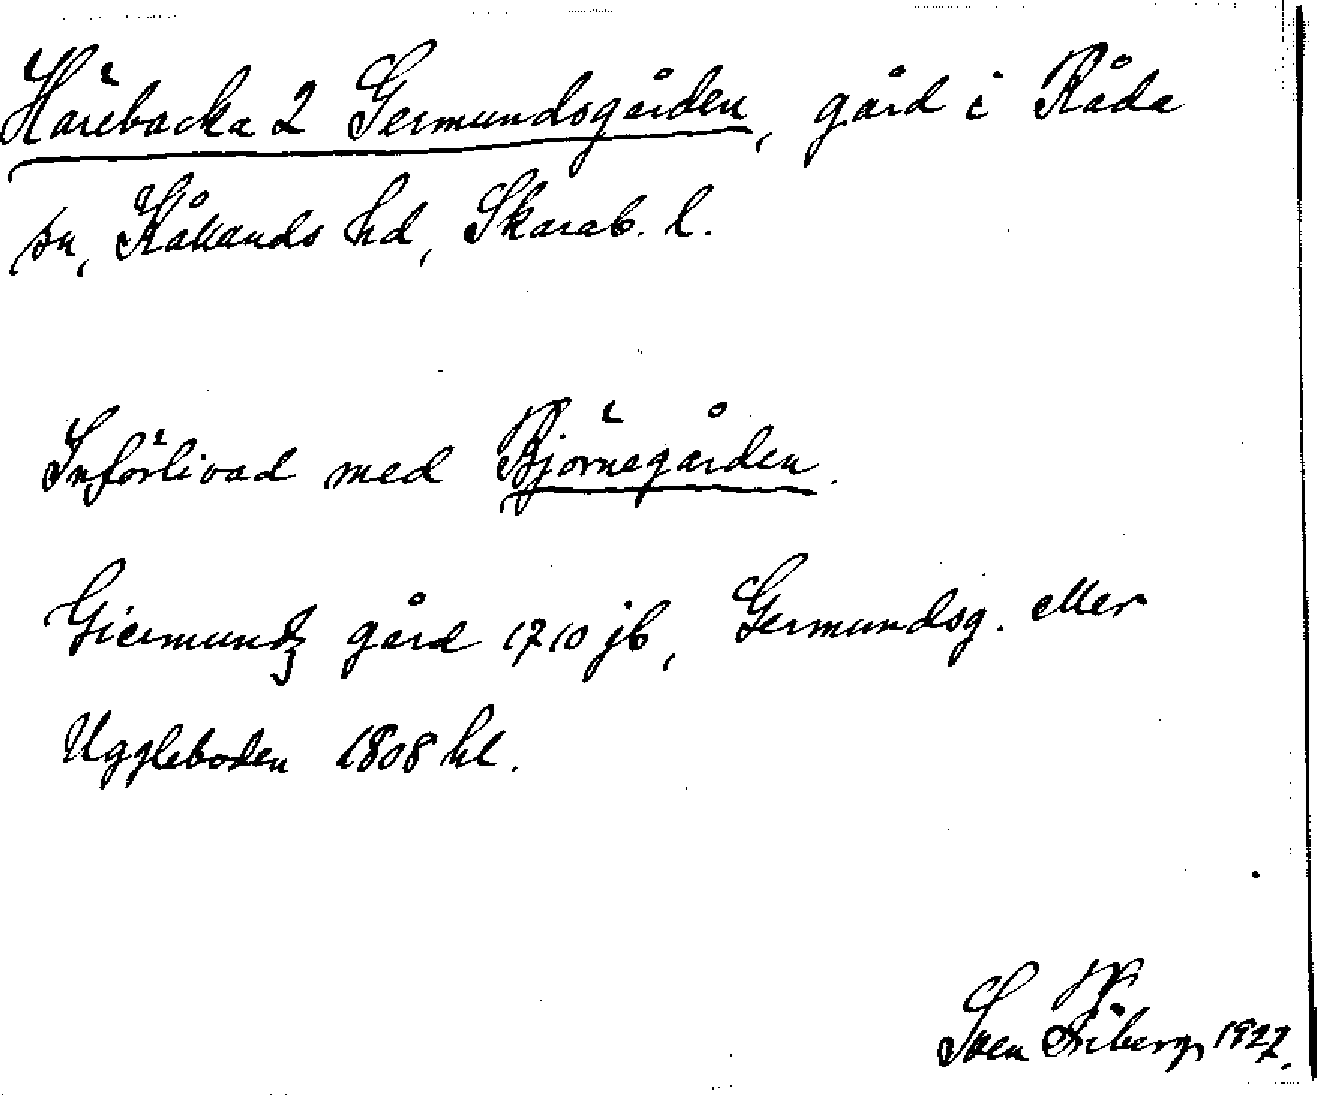 Härebacka 2 Germundsgården, gård i Råda
sn, Kållands hd, Skarab. l.
Införlivad med Björnegården.
Giermundz gård 1710 jb, Germundsg. eller
Uggleboden 1808 hl.
Sven Friberg, 1927.